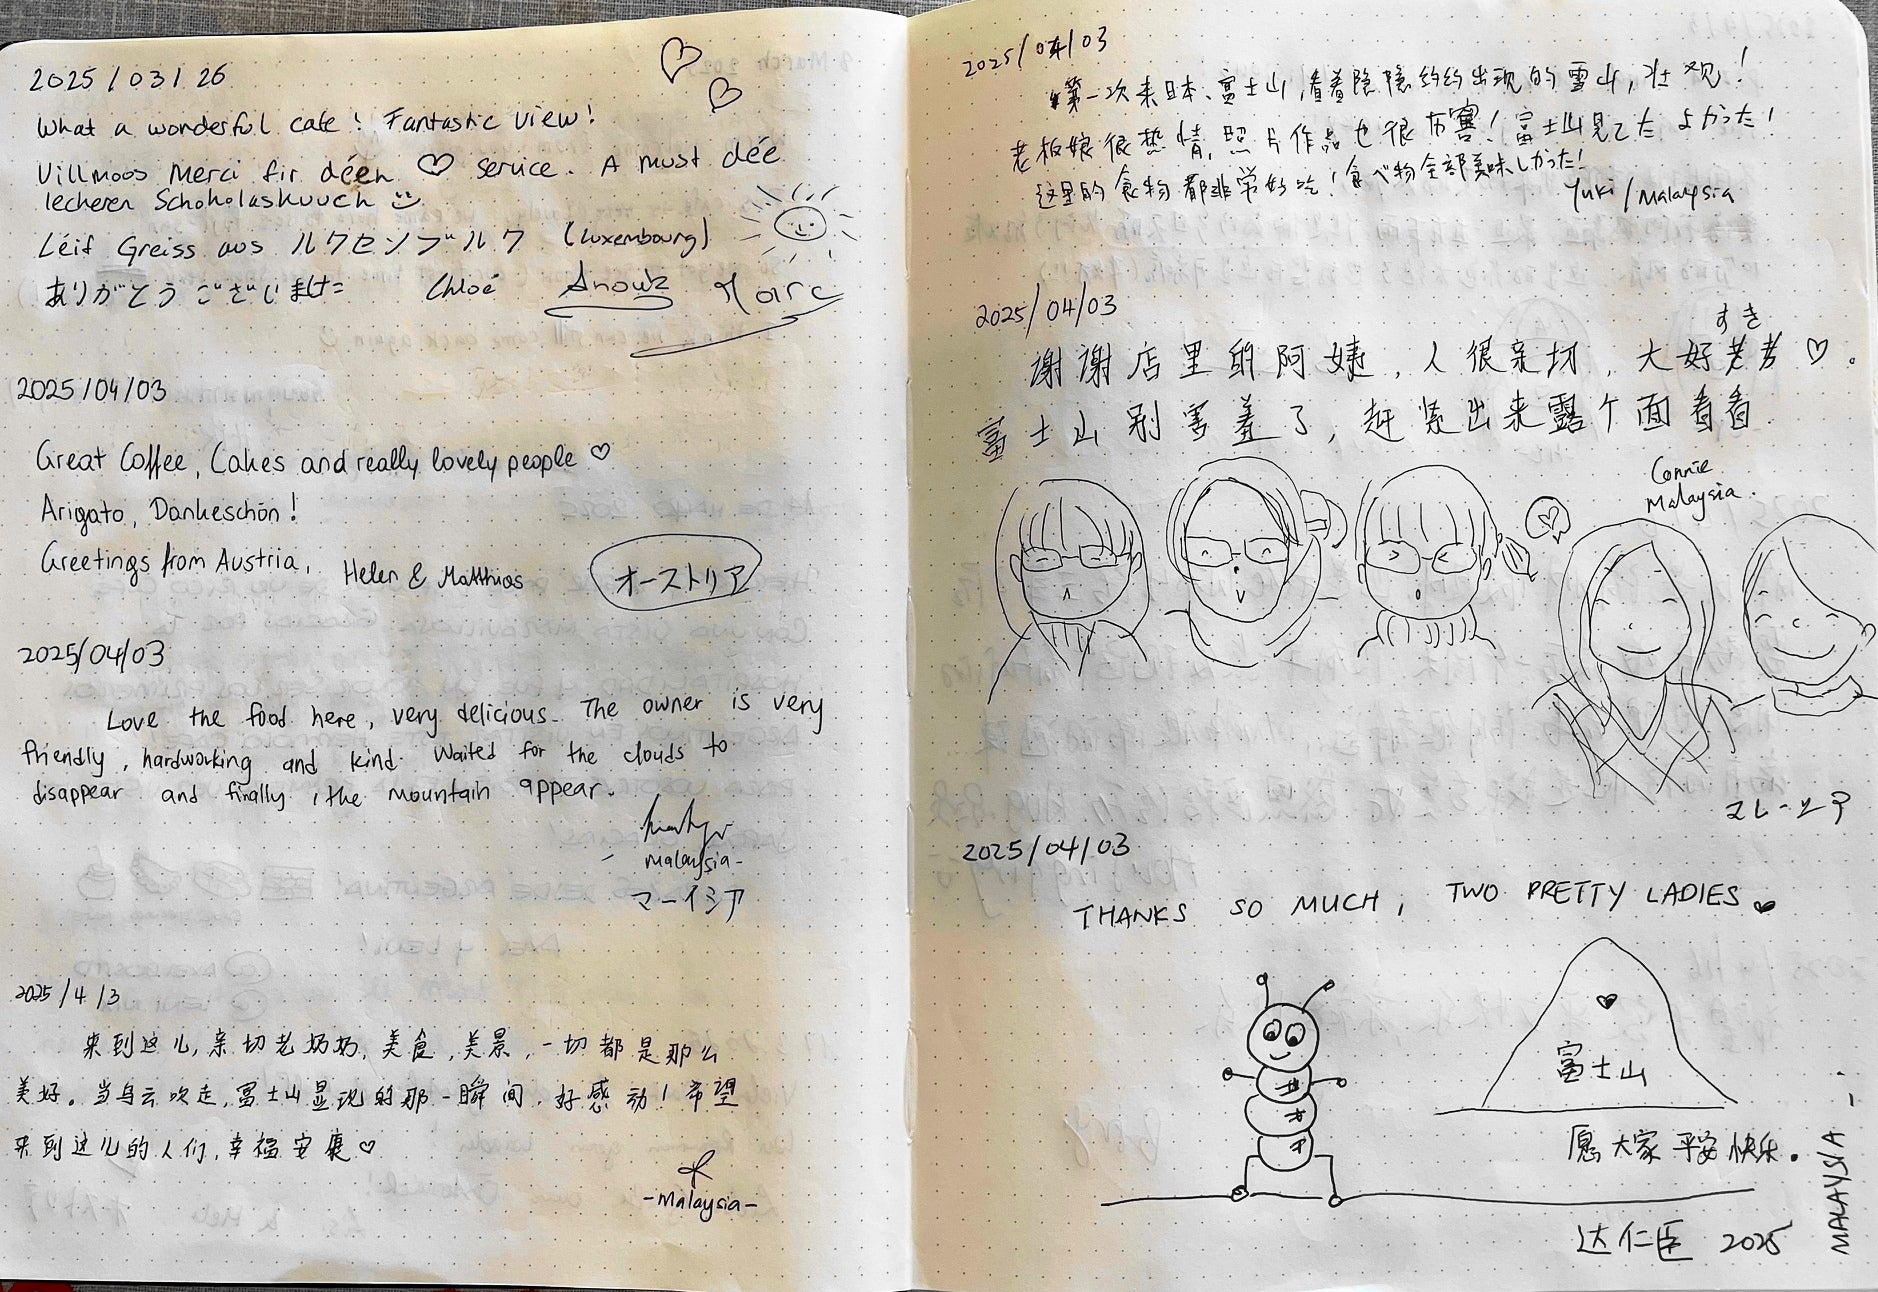 2025/03/26
What a wonderful cafe! Fantastic view!
Villmoos Merci fir déen ♡ service. A must dée
lecheren Schokolaskuuch
Léif Greiss aus ルクセンブルク (Luxembourg)
ありがとうございました Chloé Anouk Marc
2025/04/03
Great Coffee, Cakes and really lovely people ♡
Arigato, Dankeschön!
Greetings from Austria, Helen & Matthias オーストリア
2025/04/03
Love the food here, very delicious. The owner is very
friendly, hardworking and kind. Waited for the clouds to
disappear and finally, the mountain appear.
Malaysia-
マーイシア
2025/4/3
来到这儿,亲切老奶奶,美食,美景,一切都是那么
美好。当乌云吹走,富士山显现的那一瞬间,好感动!希望
来到这儿的人们,幸福安康♡
-Malaysia-
2025/04/03
第一次来日本、富士山,看着隐隐约约出现的雪山,壮观!
老板娘很热情,照片作品也很厉害!富士山見てたよかった!
这里的食物都非常好吃!食べ物全部美味しかった!
Yuki/Malaysia
2025/04/03
すき
谢谢店里的阿婕,人很亲切,大好き♡。
富士山别害羞了,赶紧出来露个面看看
Connie
Malaysia.
2025/04/03
THANKS SO MUCH, TWO PRETTY LADIES
富士山
愿大家平安快乐。
达仁臣 2025
MALAYSIA